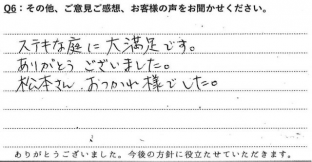 Q6：その他、ご意見ご感想、お客様の声をお聞かせください。
ステキな庭に大満足です。
ありがとうございました。
松本さん、おつかれ様でした。
ありがとうございました。今後の方針に役立たせていただきます。